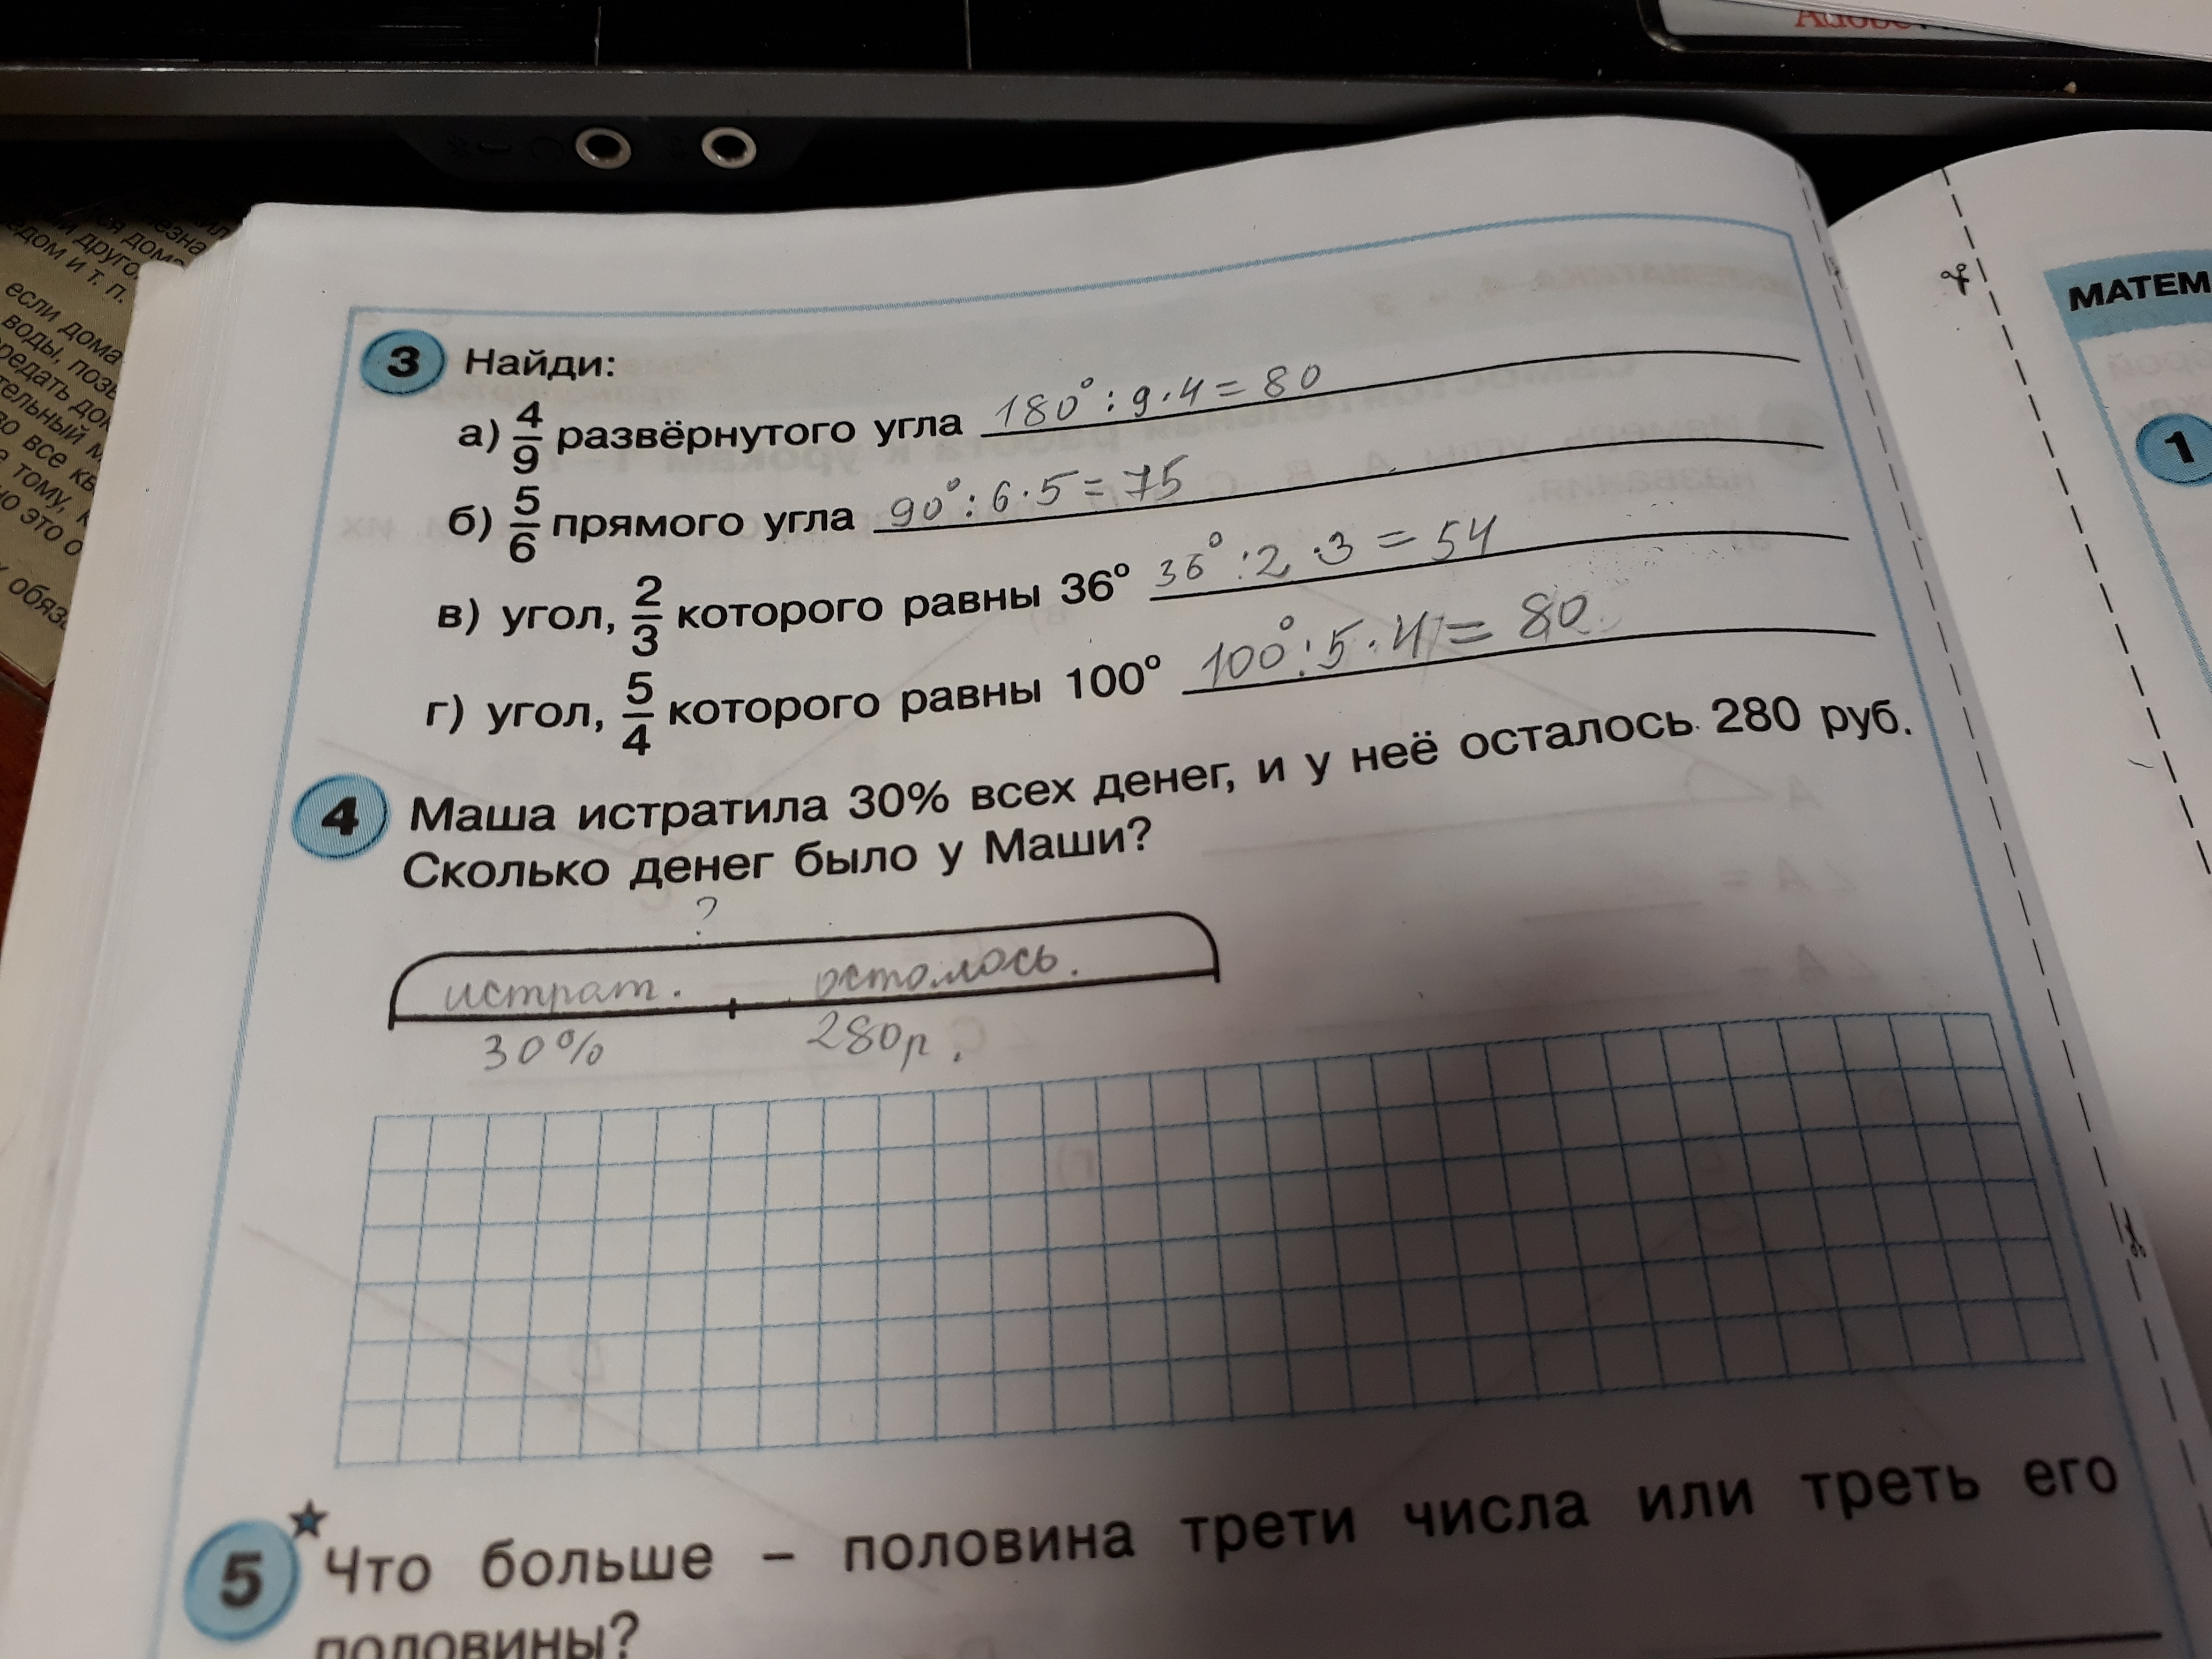 Adobe
если дома
воды,
обяз
МАТЕМ
3 Найди:
а) 4/9 развёрнутого угла 180° : 9 · 4 = 80
б) 5/6 прямого угла 90° : 6 · 5 = 75
в) угол, 2/3 которого равны 36° 36° : 2 · 3 = 54
г) угол, 5/4 которого равны 100° 100° : 5 · 4 = 80
1
4 Маша истратила 30% всех денег, и у неё осталось 280 руб.
Сколько денег было у Маши?
?
истрат. остолось.
30% 280р.
5 Что больше – половина трети числа или треть его
половины?